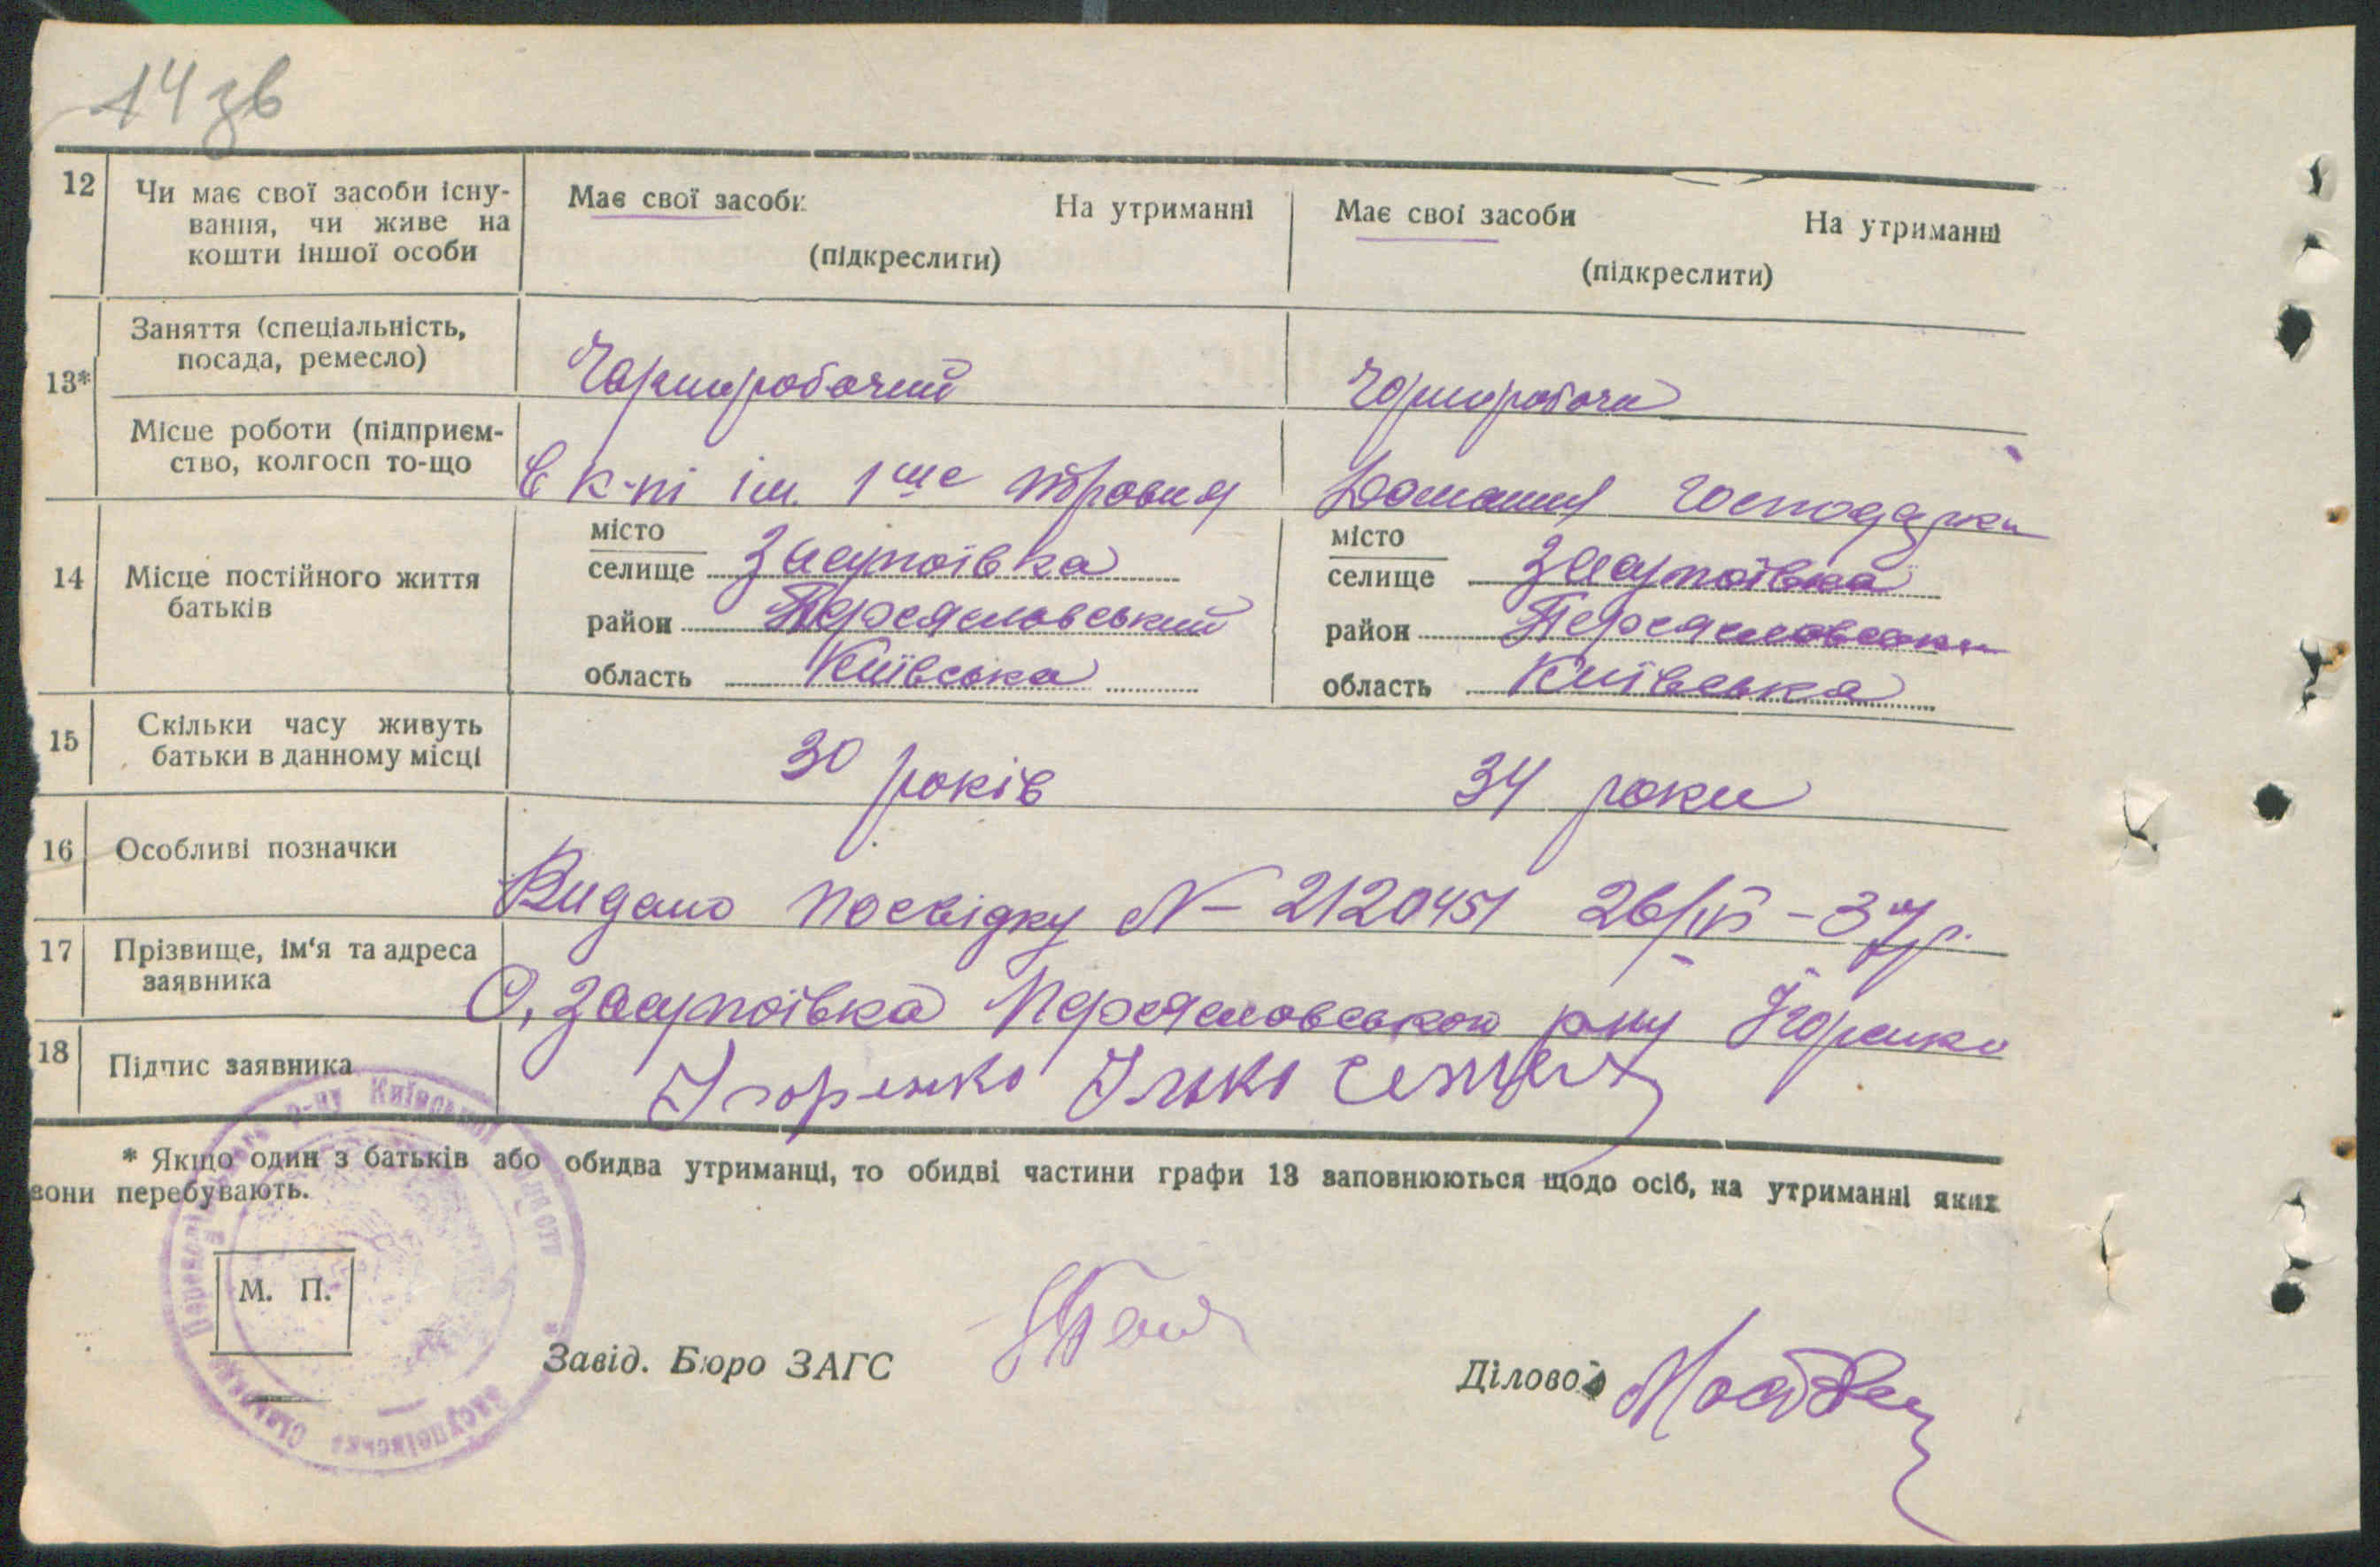 14 зв
12 Чи має свої засоби існу-
вання, чи живе на
кошти іншої особи
Має свої засоби На утриманні
(підкреслити)
Має свої засоби На утриманні
(підкреслити)
13*
Заняття (спеціальність,
посада, ремесло)
Чорноробочий
Чорноробоча
Місце роботи (підприєм-
ство, колгосп то-що
В к-пі ім. 1ше травня
Домашня господарка
14 Місце постійного життя
батьків
місто
селище Засупоївка
район Переяславський
область Київська
місто
селище Засупоївка
район Переяславськи
область Київська
15 Скільки часу живуть
батьки в данному місці
30 років
34 роки
16 Особливі позначки
Видано посвідку N– 2120451 26/VI – 37 р.
17 Прізвище, ім'я та адреса
заявника
С, Засупоївка Переяславського рну Ігоренко
18 Підпис заявника
Ігоренко Ілько
* Якщо один з батьків або обидва утриманці, то обидві частини графи 13 заповнюються щодо осіб, на утриманні яких
вони перебувають.
М. П.
р-ну Київської області
Засупоївська Сільська
Завід. Бюро ЗАГС
Діловод